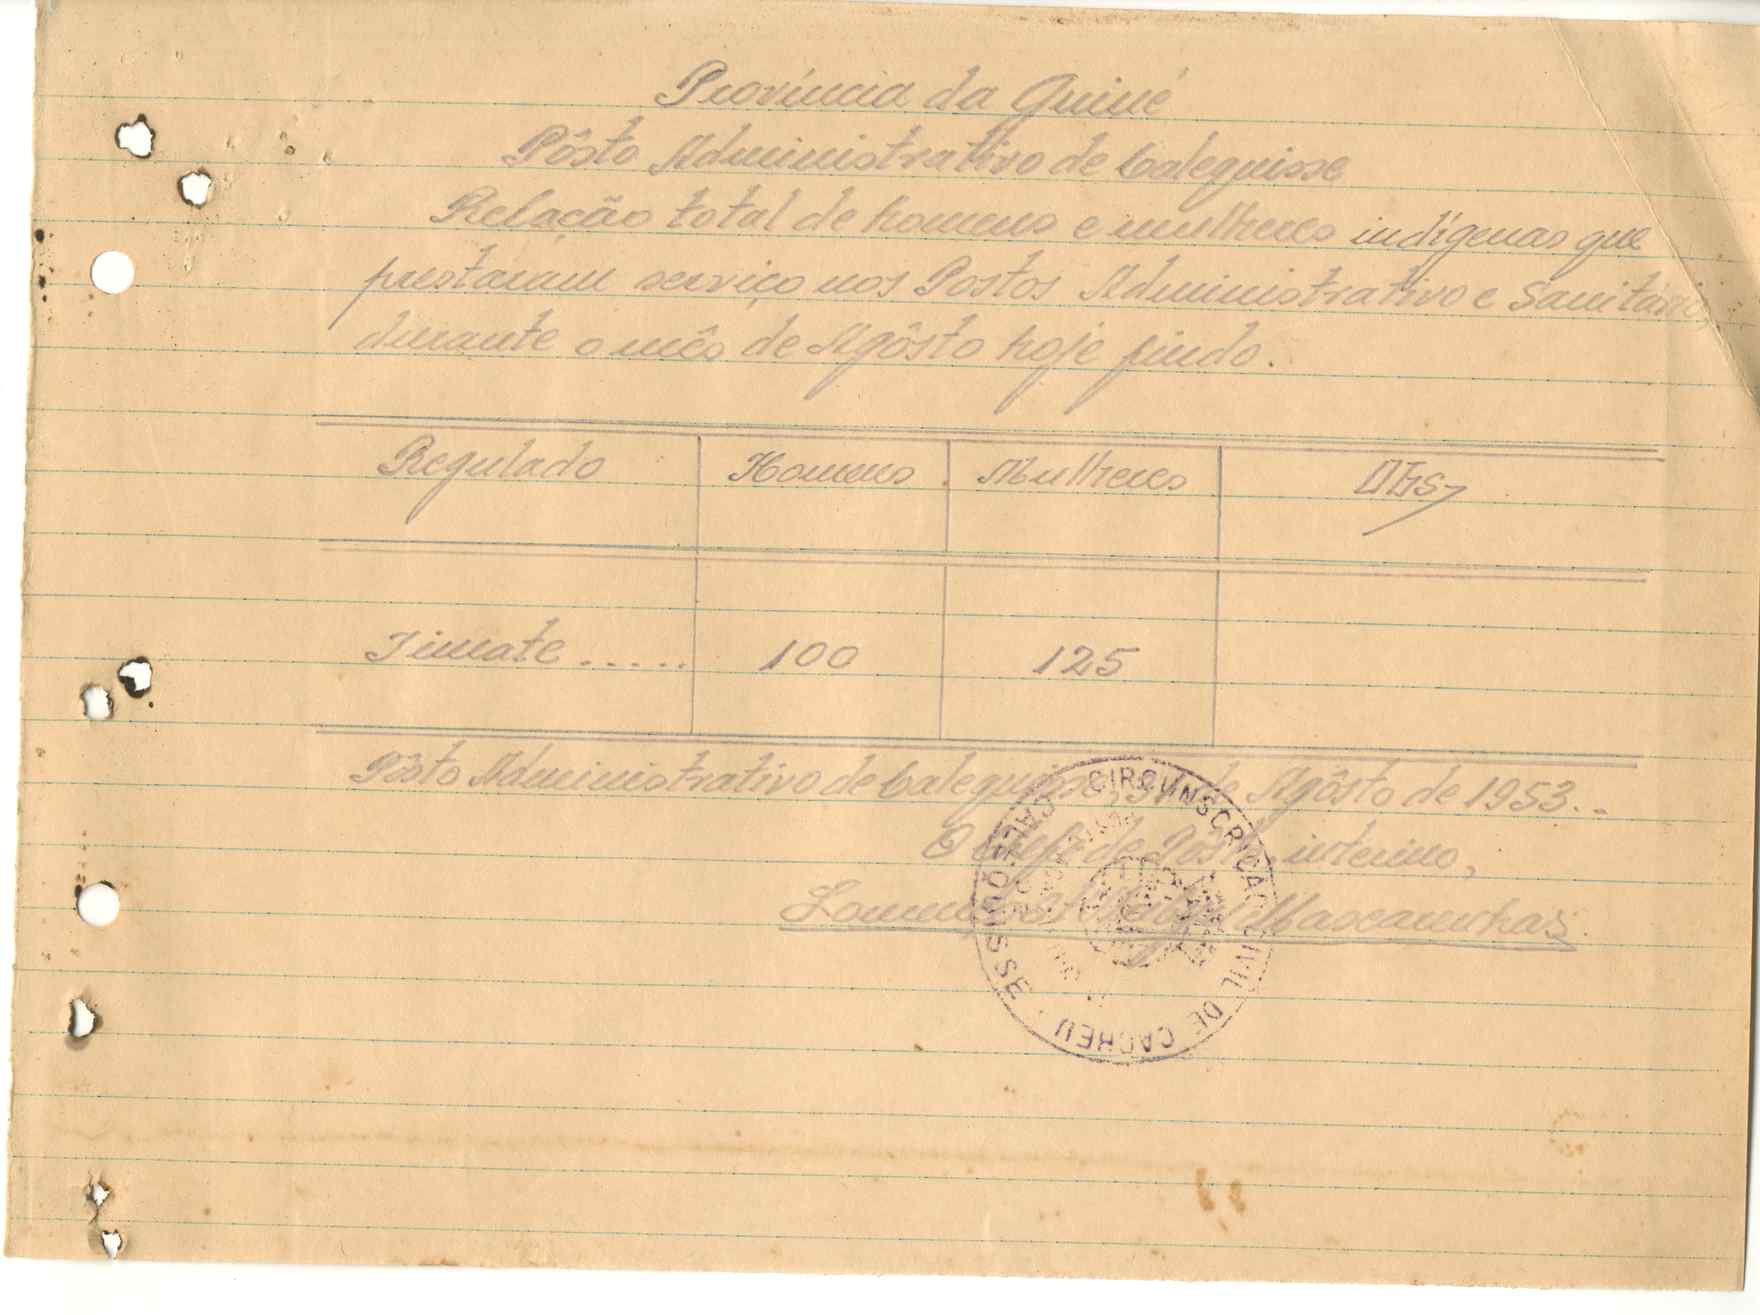 Província da Guiné
Pôsto Administrativo de Calequisse
Relação total de homens e mulheres indígenas que
prestaram serviço nos Postos Administrativo e Sanitário,
durante o mês de Agôsto hoje findo.
Regulado Homens Mulheres Obs
..... 100 125
Pôsto Administrativo de Calequisse, 31 de Agôsto de 1953..
O Chefe de Pôsto, interino,
Mascarenhas.
CIRCUNSCRIÇÃO CIVIL DE CACHEU
CALEQUISSE